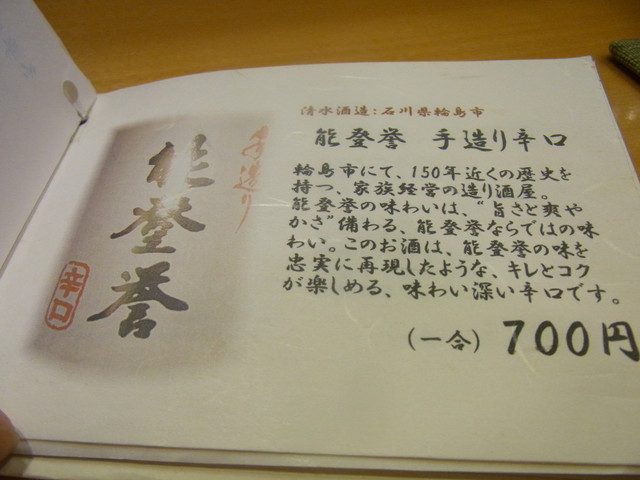 手造り
能登誉
辛口
清水酒造：石川県輪島市
能登誉 手造り辛口
輪島市にて、150年近くの歴史を
持つ、家族経営の造り酒屋。
能登誉の味わいは、“旨さと爽や
かさ”備わる、能登誉ならではの味
わい。このお酒は、能登誉の味を
忠実に再現したような、キレとコク
が楽しめる、味わい深い辛口です。
(一合) 700円